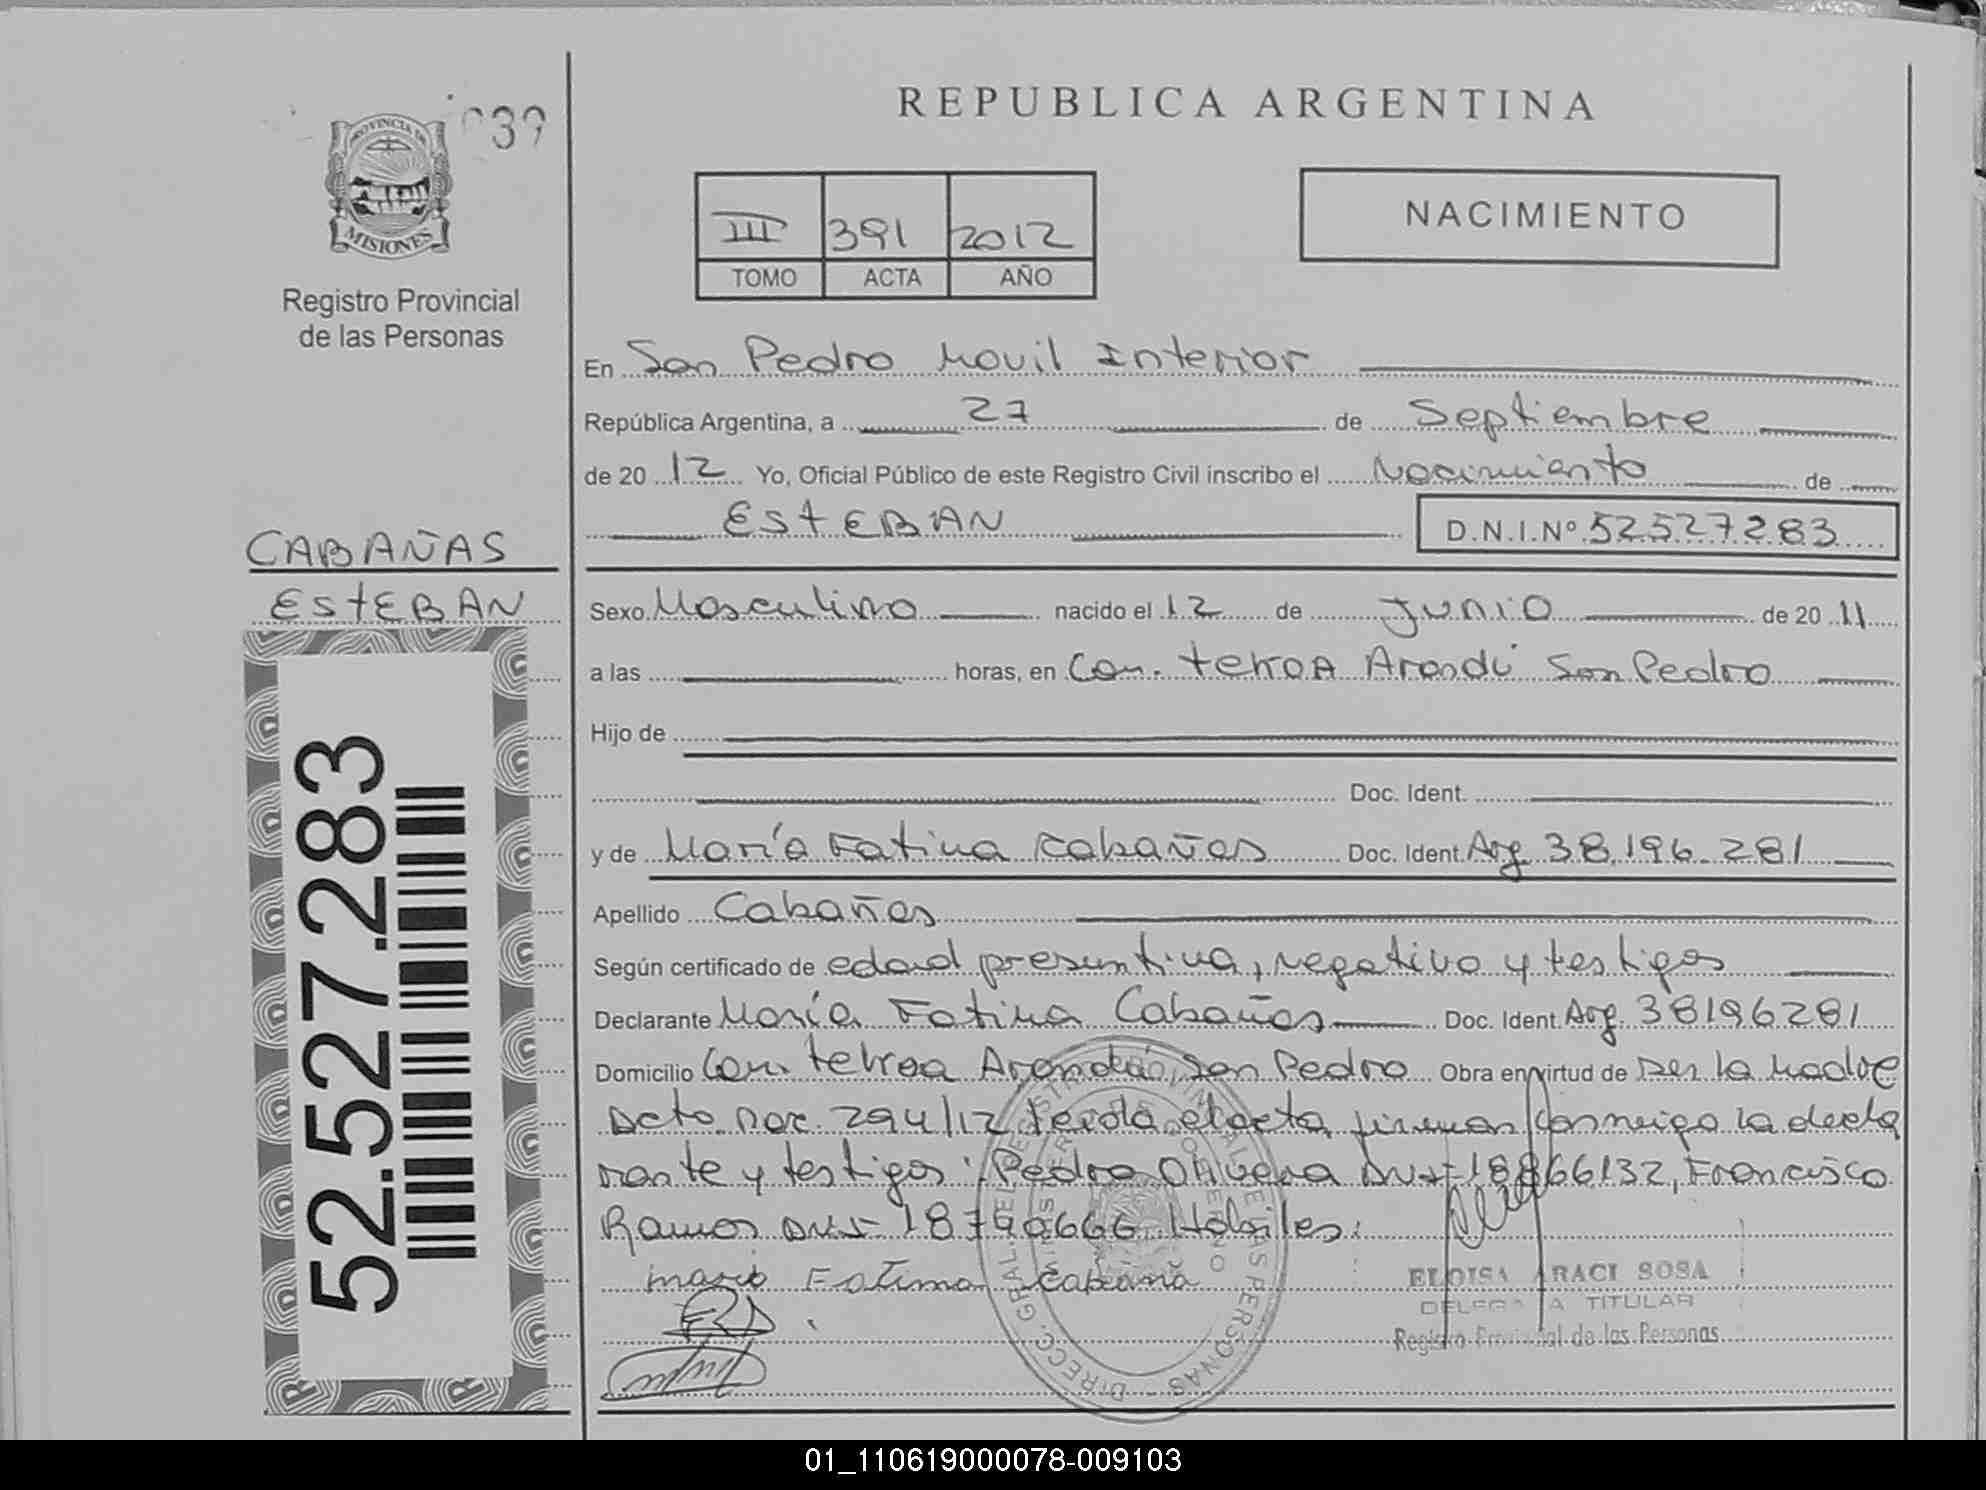 REPUBLICA ARGENTINA
039
PROVINCIA DE
MISIONES
Registro Provincial
de las Personas
III 391 2012
TOMO ACTA AÑO
NACIMIENTO
En San Pedro Movil Interior
República Argentina, a 27 de Septiembre
de 20 12 Yo, Oficial Público de este Registro Civil inscribo el Nacimiento de
ESTEBAN D.N.I.Nº 52527283
CABAÑAS
ESTEBAN
52.527.283
Sexo Masculino nacido el 12 de Junio de 20 11
a las horas, en Com. tekoa Arandú San Pedro
Hijo de
Doc. Ident.
y de María Fatima Cabañas Doc. Ident. Arg. 38.196.281
Apellido Cabañas
Según certificado de edad presuntiva, negativo y testigos
Declarante María Fatima Cabañas Doc. Ident. Arg. 38196281
Domicilio Com. tekoa Arandú, San Pedro Obra en virtud de ser la madre
Dcto. nac. 294/12 leída el acta, firman conmigo la decla
rante y testigos: Pedro Olivera DNI 18866132, Francisco
Ramos DNI 18790666 Habiles:
maria Fatima Cabaña
ELOISA ARACI SOSA
DELEGADA TITULAR
Registro Provincial de las Personas
01_110619000078-009103